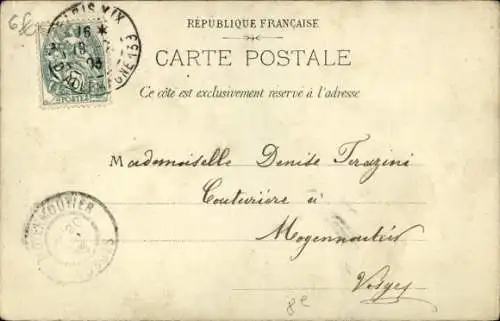 RÉPUBLIQUE FRANÇAISE
CARTE POSTALE
Ce côté est exclusivement réservé à l'adresse
PARIS XIX
16
18
POSTES
Mademoiselle Denise Terazini
Couturière à
Moyenmoutier
Vosges
MOYENMOUTIER
VOSGES
8e